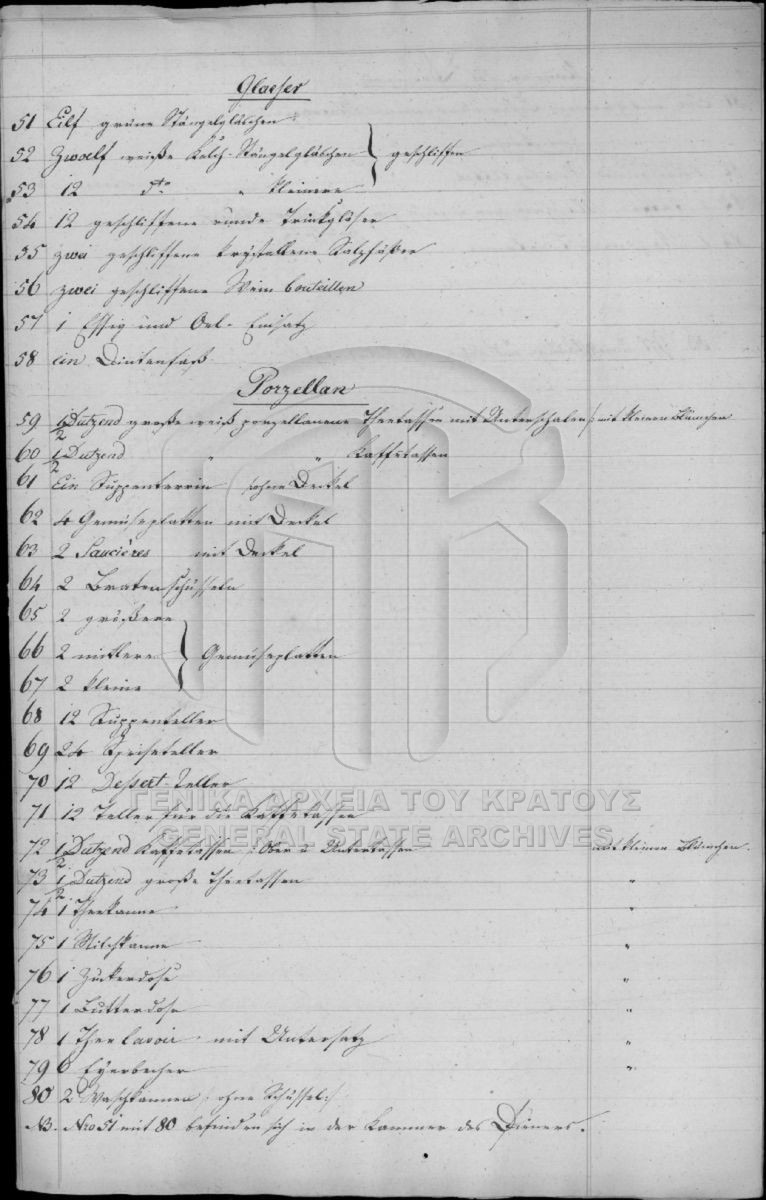 Glaeser
51 Eilf grüne Stängelgläschen
52 Zwoelf weiße Kelch-Stängelgläschen } geschliffen
53 12 dto " kleinere
54 12 geschliffene runde Trinkgläser
55 zwei geschliffene krystallene Salzfäßer
56 zwei geschliffene Wein bouteillen
57 1 Essig und Oel-Einsatz
58 ein Dintenfaß
Porzellan
59 1/2 Dutzend große weiß porzellanene Theetassen mit Unterschalen /: mit kleinen Blümchen
60 1/2 Dutzend " " Kaffetassen
61 Ein Suppenterrin /:ohne Deckel
62 4 Gemüseplatten mit Deckel
63 2 Saucières mit Deckel
64 2 Bratenschüsseln
65 2 größere
66 2 mittlere } Gemüseplatten
67 2 kleine
68 12 Suppenteller
69 24 Speiseteller
70 12 Dessert-Teller
71 12 Teller für die Kaffetassen
ΓΕΝΙΚΑ ΑΡΧΕΙΑ ΤΟΥ ΚΡΑΤΟΥΣ
GENERAL STATE ARCHIVES
72 1/2 Dutzend Kaffetassen /: Ober u Untertassen mit kleinen Blümchen.
73 1/2 Dutzend große Theetassen "
74 1 Theekanne "
75 1 Milchkanne "
76 1 Zuckerdose "
77 1 Butterdose "
78 1 Thee lavoir mit Untersatz "
79 6 Eyerbecher "
80 2 Waschkannen /: ohne Schüssel:/
NB. Nro 51 mit 80 befinden sich in der Kammer des Dieners.